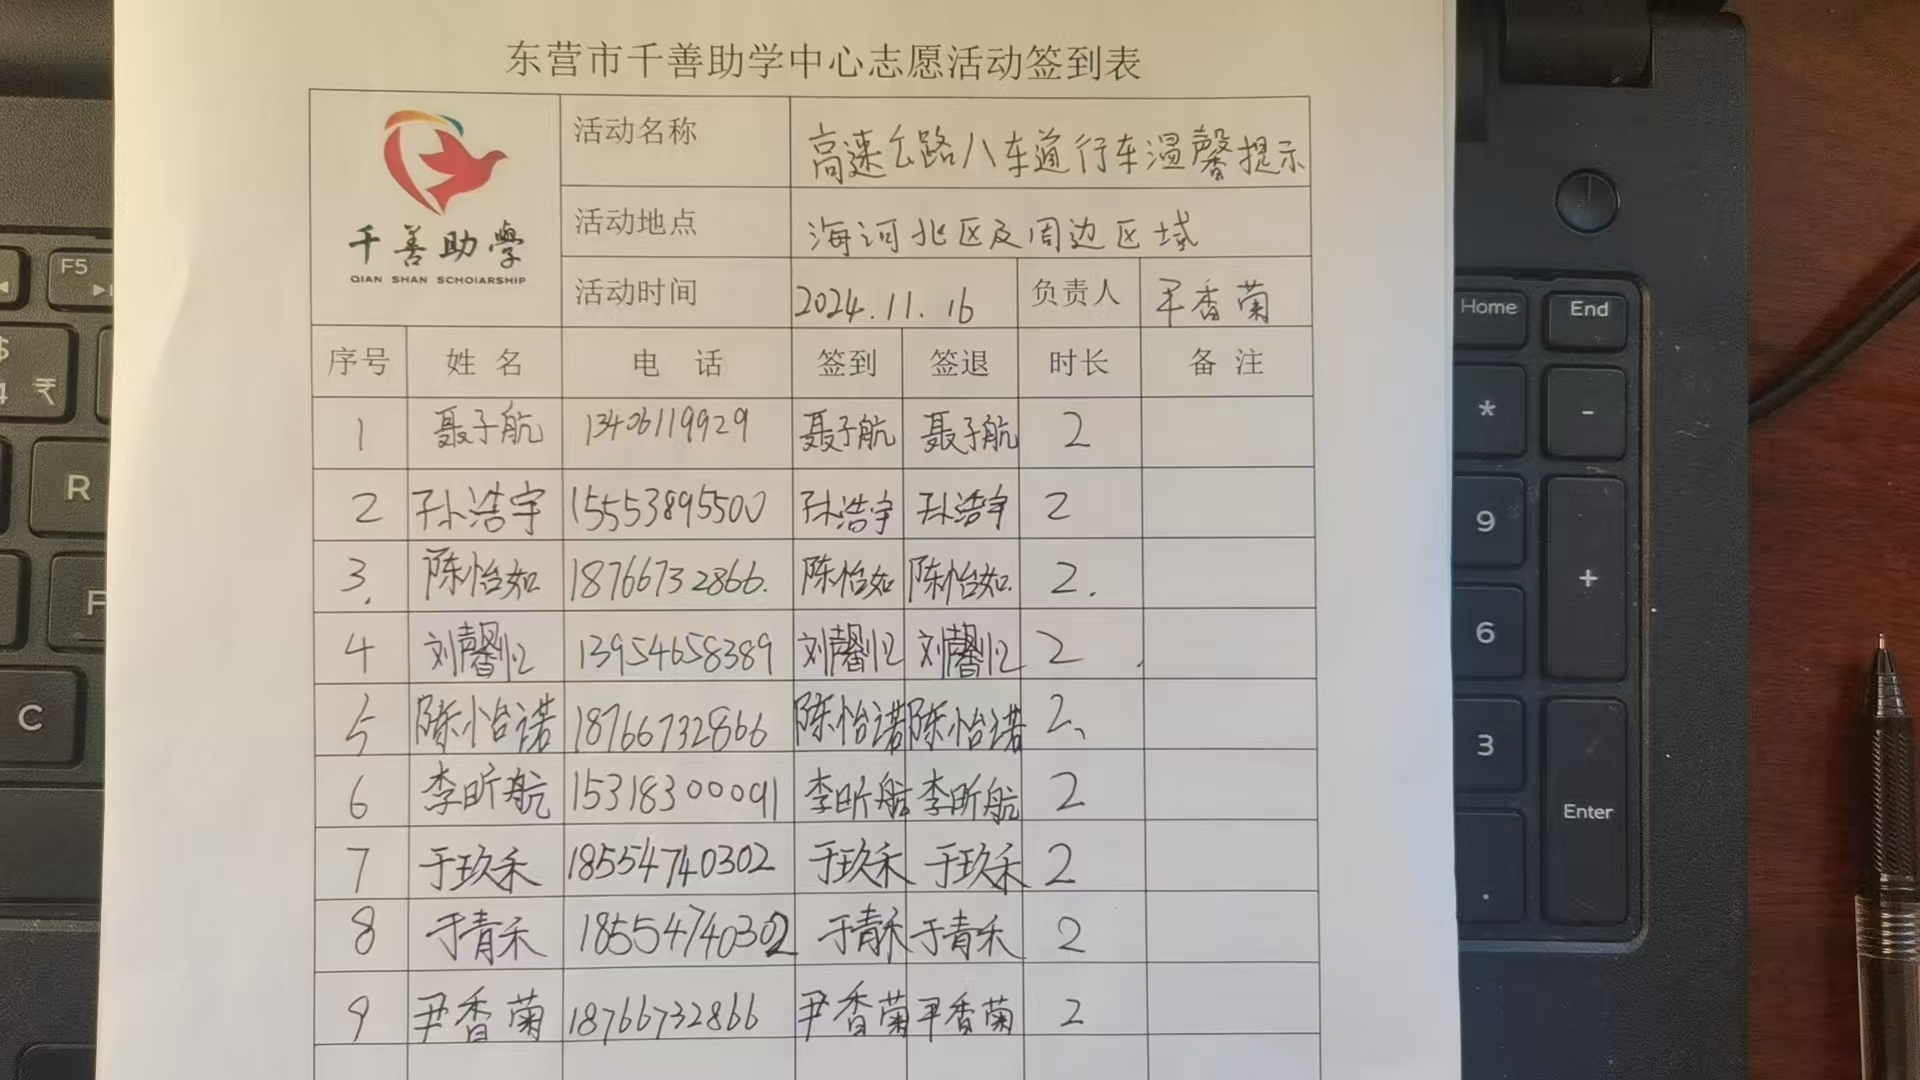 东营市千善助学中心志愿活动签到表
千善助學
QIAN SHAN SCHOIARSHIP
活动名称 高速公路八车道行车温馨提示
活动地点 海河北区及周边区域
活动时间 2024.11.16 负责人 尹香菊
序号 姓名 电话 签到 签退 时长 备注
1 聂子航 13406119929 聂子航 聂子航 2
2 孙浩宇 15553895500 孙浩宇 孙浩宇 2
3. 陈怡如 18766732866. 陈怡如 陈怡如. 2.
4 刘馨忆 13954658389 刘馨忆 刘馨忆 2
5 陈怡诺 18766732866 陈怡诺 陈怡诺 2、
6 李昕航 15318300091 李昕航 李昕航 2
7 于玖禾 18554740302 于玖禾 于玖禾 2
8 于青禾 18554740302 于青禾 于青禾 2
9 尹香菊 18766732866 尹香菊 尹香菊 2
F5
Home End
$
4 ₹
* -
R
9
+
F
6
C
3
Enter
.